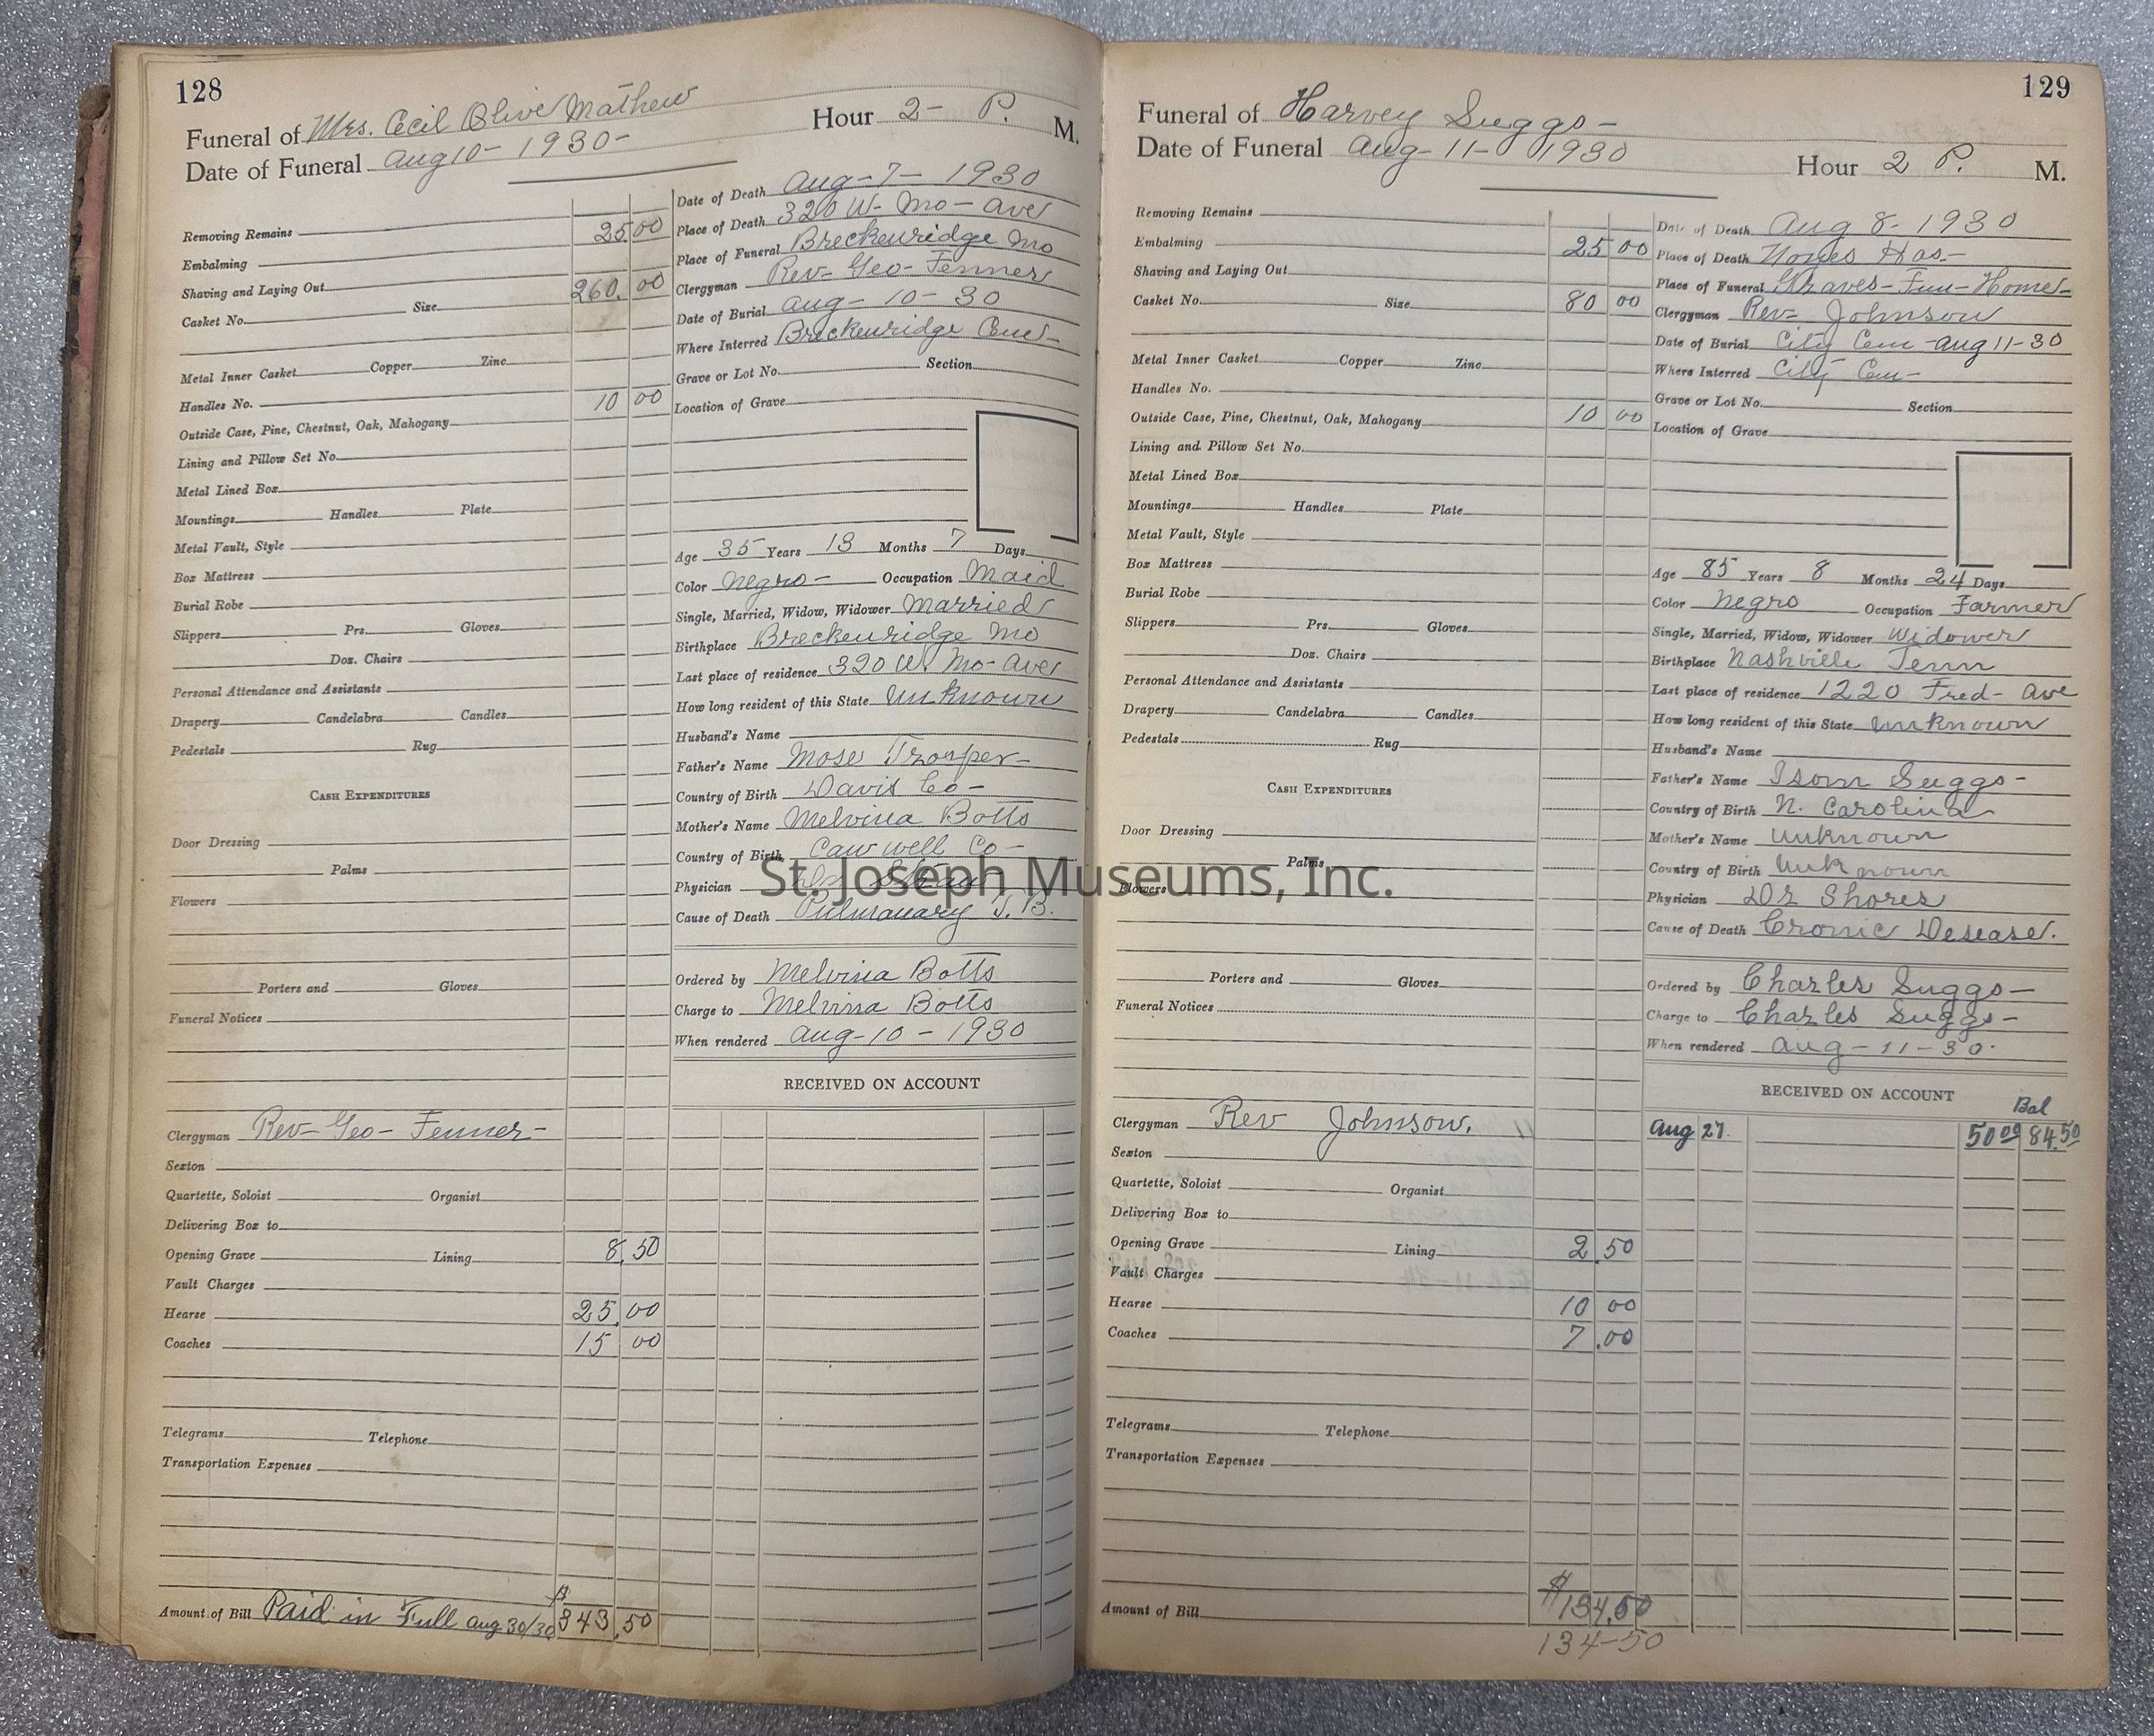 128
Funeral of Mrs. Cecil Olive Mathew
Hour 2- P. M.
Date of Funeral Aug 10- 1930-
Removing Remains
Embalming 25 00
Shaving and Laying Out
Casket No. Size 260. 00
Metal Inner Casket Copper Zinc
Handles No.
Outside Case, Pine, Chestnut, Oak, Mahogany 10 00
Lining and Pillow Set No.
Metal Lined Box
Mountings Handles Plate
Metal Vault, Style
Box Mattress
Burial Robe
Slippers Prs. Gloves
Doz. Chairs
Personal Attendance and Assistants
Drapery Candelabra Candles
Pedestals Rug
CASH EXPENDITURES
Door Dressing
Palms
Flowers
Porters and Gloves
Funeral Notices
Clergyman Rev- Geo- Fenner-
Sexton
Quartette, Soloist Organist
Delivering Box to
Opening Grave Lining 8.50
Vault Charges
Hearse 25.00
Coaches 15 00
Telegrams Telephone
Transportation Expenses
Amount of Bill Paid in Full Aug 30/30 $343.50
Date of Death Aug-7- 1930
Place of Death 320 W- Mo- Ave
Place of Funeral Breckenridge Mo
Clergyman Rev- Geo- Fenner
Date of Burial Aug- 10- 30
Where Interred Breckenridge Cem-
Grave or Lot No. Section
Location of Grave
Age 35 Years 13 Months 7 Days
Color Negro- Occupation Maid
Single, Married, Widow, Widower Married
Birthplace Breckenridge Mo
Last place of residence 320 W. Mo- Ave
How long resident of this State Unknown
Husband's Name
Father's Name Mose Trosper-
Country of Birth Davis Co-
Mother's Name Melvina Botts
Country of Birth Cawwell Co-
Physician
Cause of Death Pulmanary T.B.
Ordered by Melvina Botts
Charge to Melvina Botts
When rendered Aug-10-1930
RECEIVED ON ACCOUNT
129
Funeral of Harvey Suggs-
Date of Funeral Aug-11- 1930
Hour 2 P. M.
Removing Remains
Embalming 25 00
Shaving and Laying Out
Casket No. Size 80 00
Metal Inner Casket Copper Zinc
Handles No.
Outside Case, Pine, Chestnut, Oak, Mahogany 10 00
Lining and Pillow Set No.
Metal Lined Box
Mountings Handles Plate
Metal Vault, Style
Box Mattress
Burial Robe
Slippers Prs. Gloves
Doz. Chairs
Personal Attendance and Assistants
Drapery Candelabra Candles
Pedestals Rug
CASH EXPENDITURES
Door Dressing
Palms
Flowers
Porters and Gloves
Funeral Notices
Clergyman Rev Johnson.
Sexton
Quartette, Soloist Organist
Delivering Box to
Opening Grave Lining 2.50
Vault Charges
Hearse 10 00
Coaches 7.00
Telegrams Telephone
Transportation Expenses
Amount of Bill $134.50
134-50
Date of Death Aug 8-1930
Place of Death Noyes Hos-
Place of Funeral Graves-Fun-Home-
Clergyman Rev- Johnson
Date of Burial City Cem-Aug 11-30
Where Interred City Cem-
Grave or Lot No. Section
Location of Grave
Age 85 Years 8 Months 24 Days
Color Negro Occupation Farmer
Single, Married, Widow, Widower Widower
Birthplace Nashville Tenn
Last place of residence 1220 Fred- Ave
How long resident of this State Unknown
Husband's Name
Father's Name Isom Suggs-
Country of Birth N. Carolina
Mother's Name Unknown
Country of Birth Unknown
Physician Dr Shores
Cause of Death Cronic Desease.
Ordered by Charles Suggs-
Charge to Charles Suggs-
When rendered Aug-11-30.
RECEIVED ON ACCOUNT
Bal
Aug 27. 50 00 84.50
St. Joseph Museums, Inc.